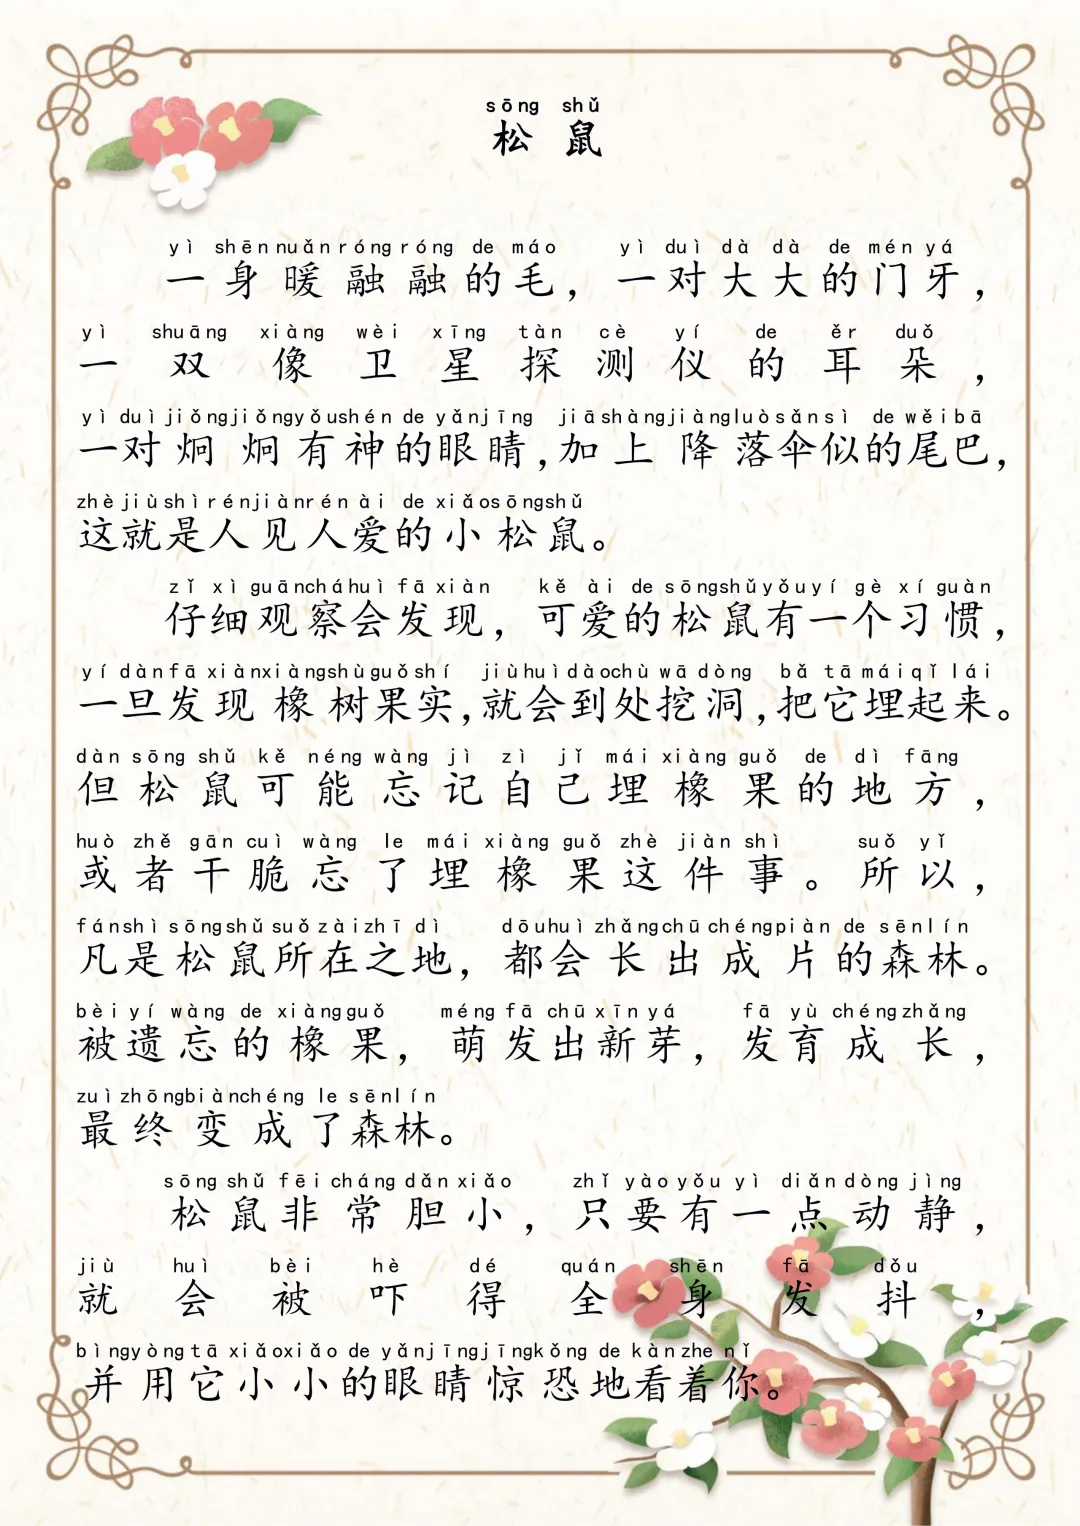 sōng shǔ
松鼠
yì shēn nuǎn róng róng de máo yì duì dà dà de mén yá
一身暖融融的毛，一对大大的门牙，
yì shuāng xiàng wèi xīng tàn cè yí de ěr duǒ
一双像卫星探测仪的耳朵，
yì duì jiǒng jiǒng yǒu shén de yǎn jīng jiā shàng jiàng luò sǎn sì de wěi bā
一对炯炯有神的眼睛，加上降落伞似的尾巴，
zhè jiù shì rén jiàn rén ài de xiǎo sōng shǔ
这就是人见人爱的小松鼠。
zǐ xì guān chá huì fā xiàn kě ài de sōng shǔ yǒu yí gè xí guàn
仔细观察会发现，可爱的松鼠有一个习惯，
yí dàn fā xiàn xiàng shù guǒ shí jiù huì dào chù wā dòng bǎ tā mái qǐ lái
一旦发现橡树果实，就会到处挖洞，把它埋起来。
dàn sōng shǔ kě néng wàng jì zì jǐ mái xiàng guǒ de dì fāng
但松鼠可能忘记自己埋橡果的地方，
huò zhě gān cuì wàng le mái xiàng guǒ zhè jiàn shì suǒ yǐ
或者干脆忘了埋橡果这件事。所以，
fán shì sōng shǔ suǒ zài zhī dì dōu huì zhǎng chū chéng piàn de sēn lín
凡是松鼠所在之地，都会长出成片的森林。
bèi yí wàng de xiàng guǒ méng fā chū xīn yá fā yù chéng zhǎng
被遗忘的橡果，萌发出新芽，发育成长，
zuì zhōng biàn chéng le sēn lín
最终变成了森林。
sōng shǔ fēi cháng dǎn xiǎo zhǐ yào yǒu yì diǎn dòng jìng
松鼠非常胆小，只要有一点动静，
jiù huì bèi hè dé quán shēn fā dǒu
就会被吓得全身发抖，
bìng yòng tā xiǎo xiǎo de yǎn jīng jīng kǒng de kàn zhe nǐ
并用它小小的眼睛惊恐地看着你。